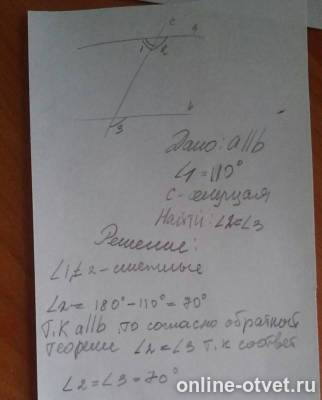 c
a
1 2
b
3
Дано: a||b
∠1=110°
c-секущая
Найти: ∠2=∠3
Решение:
∠1∠2-смежные
∠2= 180°-110°=70°
Т.К a||b, то согласно обратной
теореме ∠2=∠3 т.к соответ
∠2=∠3=70°
online-otvet.ru